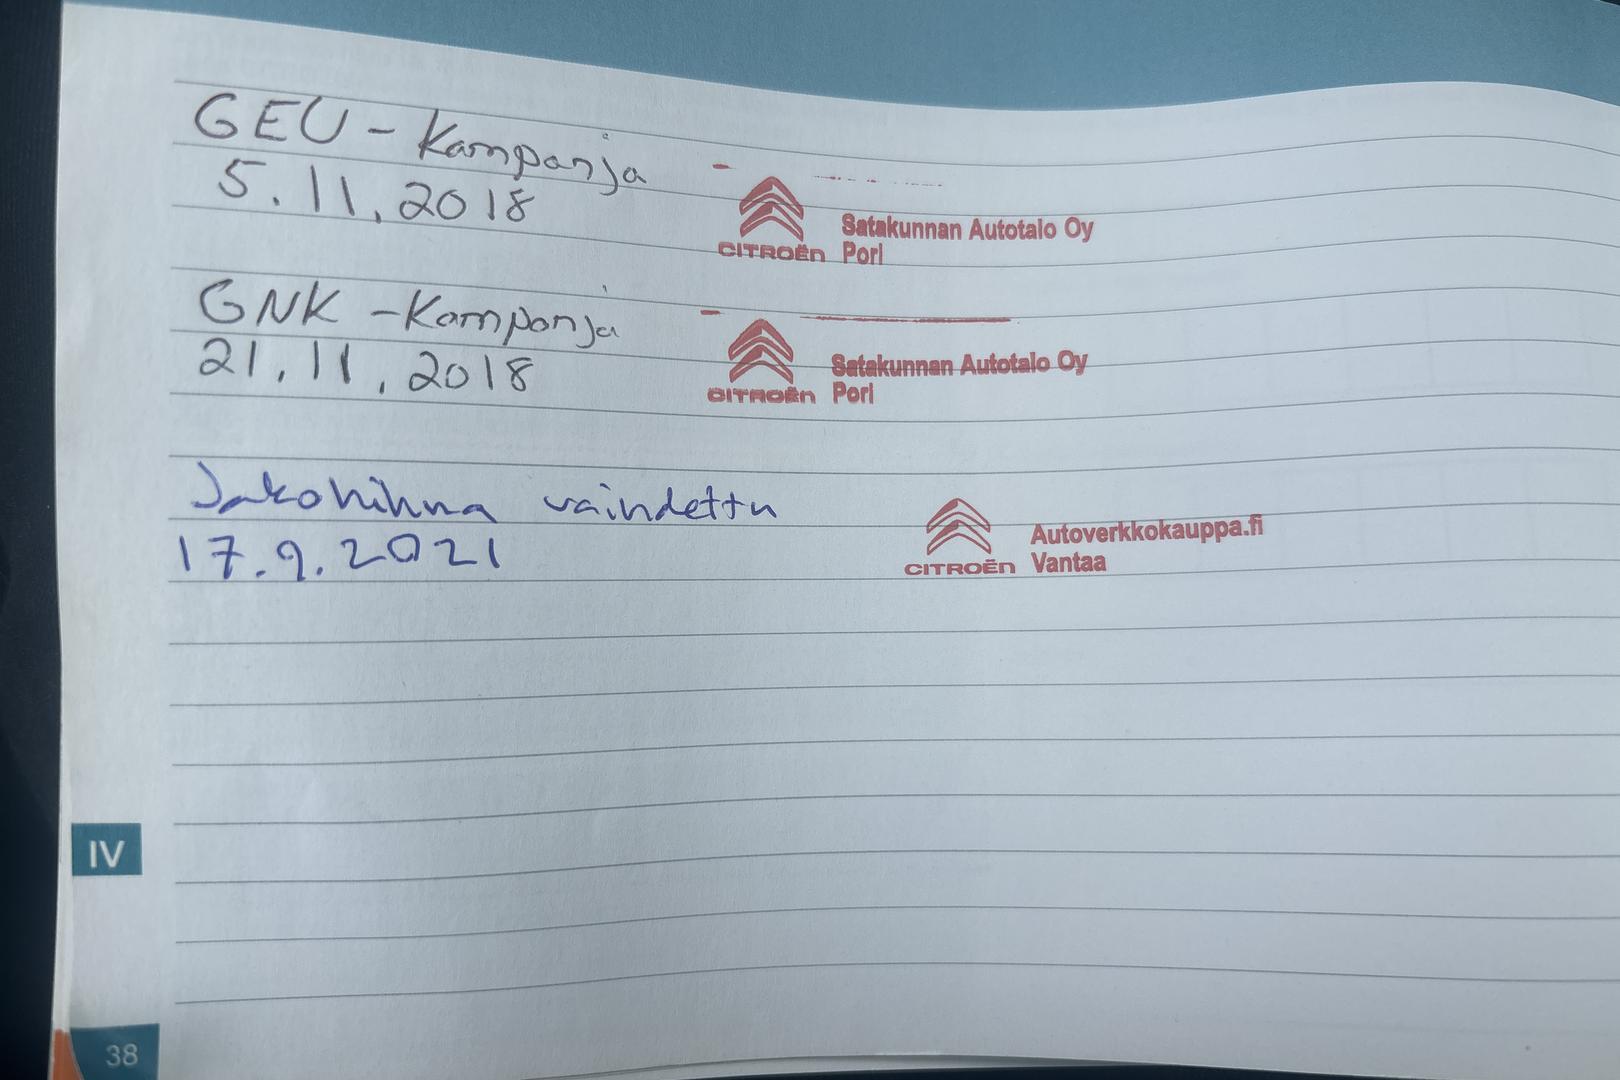 GEU - Kampanja
5.11.2018
CITROËN Satakunnan Autotalo Oy
Pori
GNK - Kampanja
21.11.2018
CITROËN Satakunnan Autotalo Oy
Pori
Jakohihna vaihdettu
17.9.2021
CITROËN Autoverkkokauppa.fi
Vantaa
IV
38